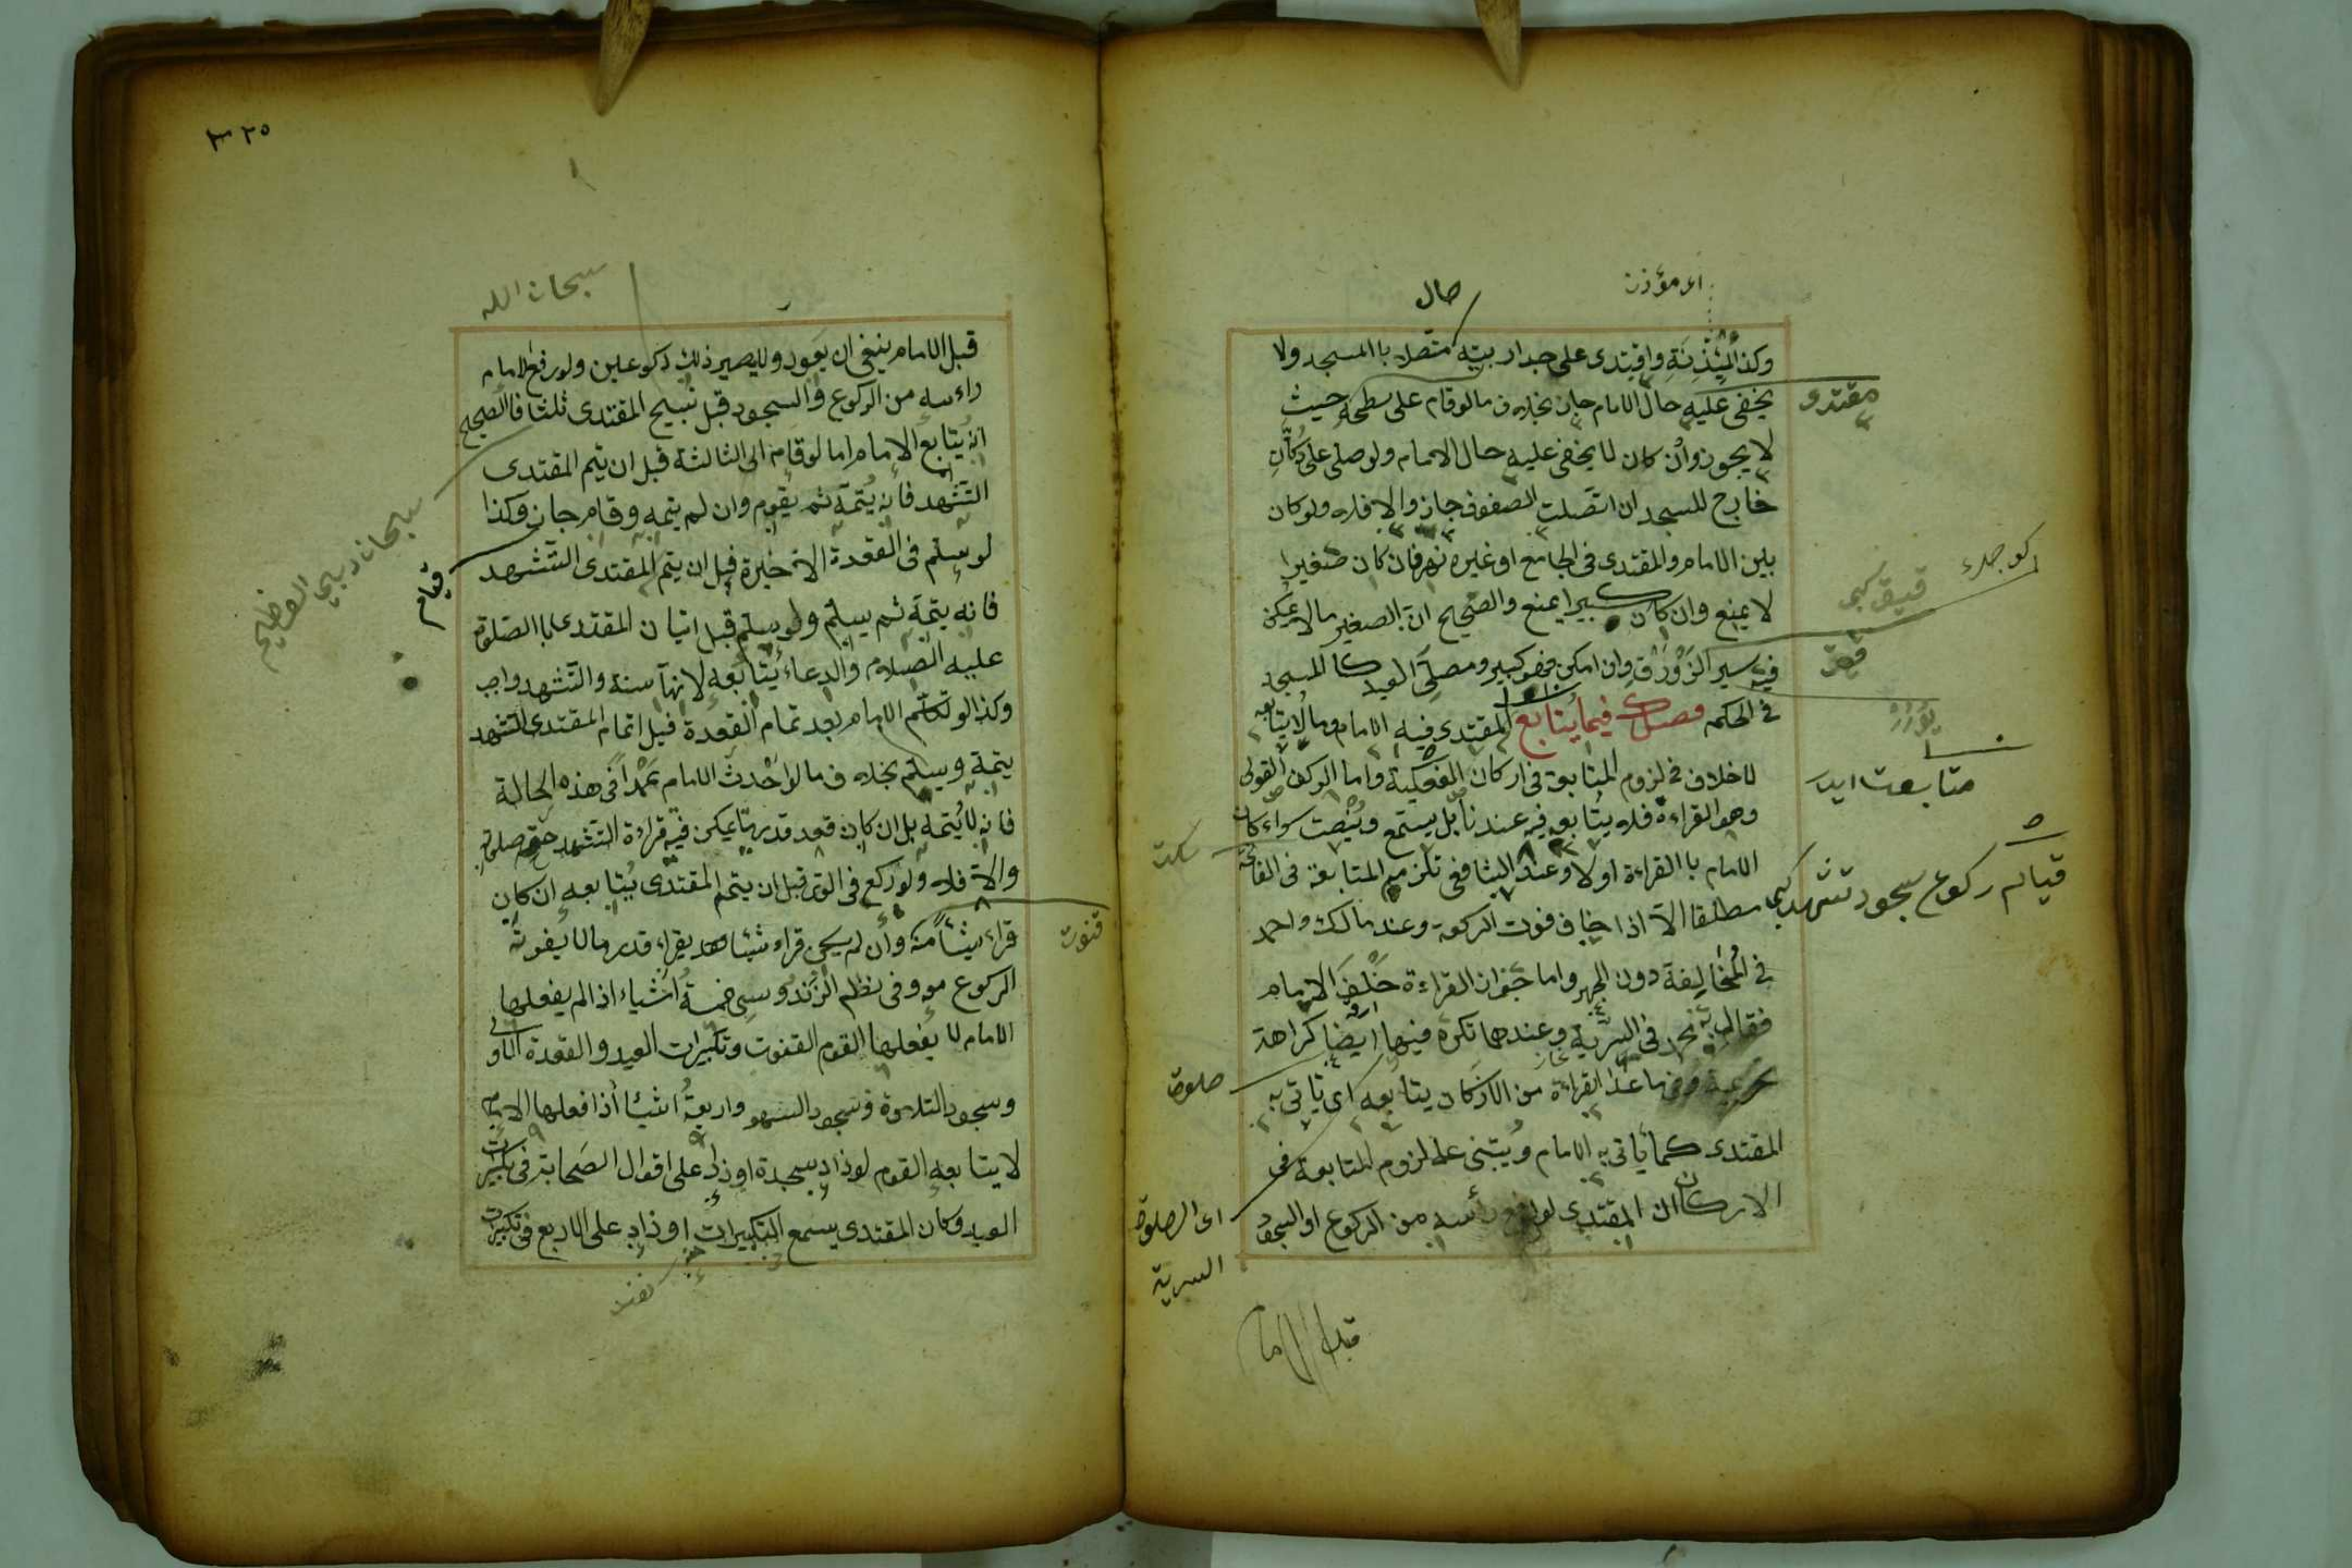 اى مؤذن
حال
وكذا المئذنة واقتدى على جدار بيته متصلا باالمسجد ولا
يخفى عليه حال الامام جاز بخلاف ما لو قام على سطحه حيث
لا يجوز وان كان لا يخفى عليه حال الامام ولو صلى على دكان
خارج المسجد ان اتصلت الصفوف جاز والا فلا ولو كان
بين الامام والمقتدى فى الجامع او غيره نهر فان كان صغيرا
لا يمنع وان كان كبيرا يمنع والصحيح ان الصغير ما لا يمكن
فيه سير الزورق وان امكن فهو كبير ومصلى العيد كالمسجد
فى الحكم فصل فيما يتابع المقتدى فيه الامام وما لا يتابعه
لا خلاف فى لزوم المتابعة فى اركان الفعلية واما الركن القولى
وهو القراءة فلا يتابعه فيه عندنا بل يستمع وينصت سواء كان
الامام باالقراءة اولا وعند الشافعى تلزم المتابعة فى الفاتحة
مطلقا الا اذا خاف فوت الركوع وعند مالك واحمد
فى المخالفة دون الجهر واما جواز القراءة خلف الامام
فقال به محمد فى السرية وعندهما تكره فيها ايضا كراهة
تحريمية وفيما عدا القراءة من الاركان يتابعه اى ياتى به
المقتدى كما ياتى به الامام ويبتنى على لزوم المتابعة فى
الاركان ان المقتدى لو رفع رأسه من الركوع او السجود
مقتدى
متابعت ايدر
قيام ركوع سجود تشهد كبى
سكت
صلوة
اى الصلوة
السرية
قبل الاما
٣٢٥
سبحان الله
قبل الامام ينبغى ان يعود ولا يصير ذلك ركوعين ولو رفع الامام
راءسه من الركوع والسجود قبل تسبيح المقتدى ثلثا فالصحيح
انه يتابع الامام اما لو قام الى الثالثة قبل ان يتم المقتدى
التشهد فانه يتمه ثم يقوم وان لم يتمه وقام جاز وكذا
لو سلم فى القعدة الاخيرة قبل ان يتم المقتدى التشهد
فانه يتمه ثم يسلم ولو سلم قبل اتيان المقتدى باالصلوة
عليه الصلام والدعاء يتابعه لانها سنة والتشهد واجب
وكذا لو تكلم الامام بعد تمام القعدة قبل اتمام المقتدى التشهد
يتمه ويسلم بخلاف ما لو احدث الامام عمدا فى هذه الحالة
فانه لا يتمه بل ان كان قعد قدر ما يمكن فيه قراءة التشهد صلوته
والا فلا ولو ركع فى الوتر قبل ان يتم المقتدى يتابعه ان كان
قراء شيئا منه وان لم يكن قراء شيئا يقراء قدر ما لا يفوته
الركوع معه وفى نظم الزندويسى خمسة اشياء اذا لم يفعلها
الامام لا يفعلها القوم القنوت وتكبيرات العيد والقعدة الاولى
وسجود التلاوة وسجود السهو واربعة اشيا اذا فعلها الامام
لا يتابعه القوم لو زاد سجدة او زاد على اقوال الصحابة فى تكبيرات
العيد وكان المقتدى يسمع التكبيرات او زاد على الاربع فى تكبيرات
سبحان ربى العظيم
قيام
قنوت